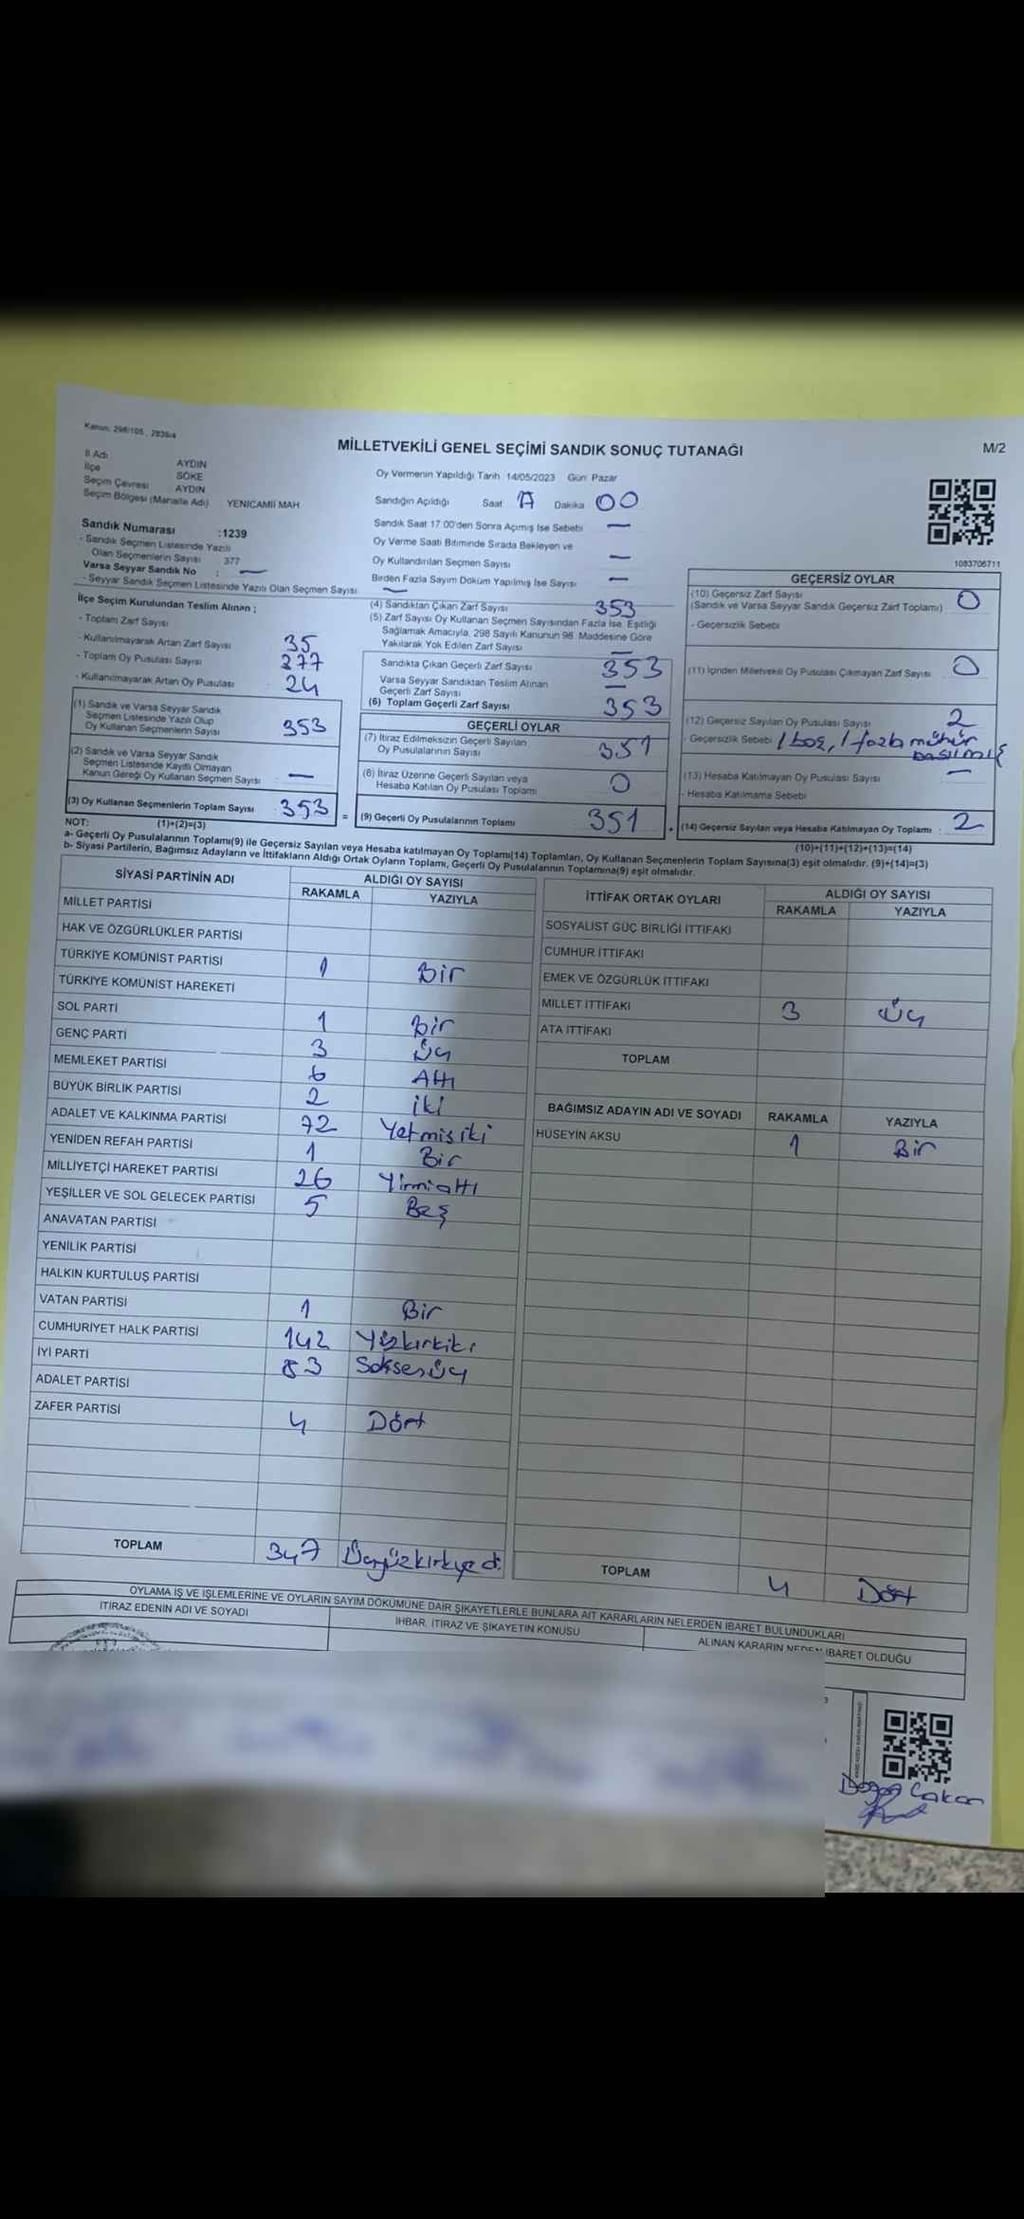 Kanun: 298/105, 2839/4
MİLLETVEKİLİ GENEL SEÇİMİ SANDIK SONUÇ TUTANAĞI
M/2
İl Adı AYDIN
İlçe SÖKE
Seçim Çevresi AYDIN
Seçim Bölgesi (Mahalle Adı) YENİCAMİİ MAH
Sandık Numarası :1239
- Sandık Seçmen Listesinde Yazılı
Olan Seçmenlerin Sayısı 377
Varsa Seyyar Sandık No : —
- Seyyar Sandık Seçmen Listesinde Yazılı Olan Seçmen Sayısı —
Oy Vermenin Yapıldığı Tarih 14/05/2023 Gün Pazar
Sandığın Açıldığı Saat 17 Dakika 00
Sandık Saat 17:00'den Sonra Açmış İse Sebebi —
Oy Verme Saati Bitiminde Sırada Bekleyen ve
Oy Kullandırılan Seçmen Sayısı —
Birden Fazla Sayım Döküm Yapılmış İse Sayısı —
1083706711
İlçe Seçim Kurulundan Teslim Alınan ;
- Toplam Zarf Sayısı
- Kullanılmayarak Artan Zarf Sayısı 35
- Toplam Oy Pusulası Sayısı 377
- Kullanılmayarak Artan Oy Pusulası 24
(1) Sandık ve Varsa Seyyar Sandık
Seçmen Listesinde Yazılı Olup
Oy Kullanan Seçmenlerin Sayısı 353
(2) Sandık ve Varsa Seyyar Sandık
Seçmen Listesinde Kayıtlı Olmayan
Kanun Gereği Oy Kullanan Seçmen Sayısı —
(3) Oy Kullanan Seçmenlerin Toplam Sayısı 353 =
(4) Sandıktan Çıkan Zarf Sayısı 353
(5) Zarf Sayısı Oy Kullanan Seçmen Sayısından Fazla İse, Eşitliği
Sağlamak Amacıyla, 298 Sayılı Kanunun 98. Maddesine Göre
Yakılarak Yok Edilen Zarf Sayısı —
Sandıkta Çıkan Geçerli Zarf Sayısı 353
Varsa Seyyar Sandıktan Teslim Alınan
Geçerli Zarf Sayısı —
(6) Toplam Geçerli Zarf Sayısı 353
GEÇERLİ OYLAR
(7) İtiraz Edilmeksizin Geçerli Sayılan
Oy Pusulalarının Sayısı 351
(8) İtiraz Üzerine Geçerli Sayılan veya
Hesaba Katılan Oy Pusulası Toplamı 0
(9) Geçerli Oy Pusulalarının Toplamı 351
GEÇERSİZ OYLAR
(10) Geçersiz Zarf Sayısı
(Sandık ve Varsa Seyyar Sandık Geçersiz Zarf Toplamı) 0
- Geçersizlik Sebebi
(11) İçinden Milletvekili Oy Pusulası Çıkmayan Zarf Sayısı 0
(12) Geçersiz Sayılan Oy Pusulası Sayısı 2
- Geçersizlik Sebebi 1 boş, 1 fazla mühür
basılmış
(13) Hesaba Katılmayan Oy Pusulası Sayısı —
- Hesaba Katılmama Sebebi
(14) Geçersiz Sayılan veya Hesaba Katılmayan Oy Toplamı : 2
NOT: (1)+(2)=(3)
(10)+(11)+(12)+(13)=(14)
a- Geçerli Oy Pusulalarının Toplamı(9) ile Geçersiz Sayılan veya Hesaba katılmayan Oy Toplamı(14) Toplamları, Oy Kullanan Seçmenlerin Toplam Sayısına(3) eşit olmalıdır. (9)+(14)=(3)
b- Siyasi Partilerin, Bağımsız Adayların ve İttifakların Aldığı Ortak Oyların Toplamı, Geçerli Oy Pusulalarının Toplamına(9) eşit olmalıdır.
SİYASİ PARTİNİN ADI ALDIĞI OY SAYISI
RAKAMLA YAZIYLA
MİLLET PARTİSİ
HAK VE ÖZGÜRLÜKLER PARTİSİ
TÜRKİYE KOMÜNİST PARTİSİ 1 Bir
TÜRKİYE KOMÜNİST HAREKETİ
SOL PARTİ 1 Bir
GENÇ PARTİ 3 Üç
MEMLEKET PARTİSİ 6 Altı
BÜYÜK BİRLİK PARTİSİ 2 iki
ADALET VE KALKINMA PARTİSİ 72 Yetmişiki
YENİDEN REFAH PARTİSİ 1 Bir
MİLLİYETÇİ HAREKET PARTİSİ 26 Yirmialtı
YEŞİLLER VE SOL GELECEK PARTİSİ 5 Beş
ANAVATAN PARTİSİ
YENİLİK PARTİSİ
HALKIN KURTULUŞ PARTİSİ
VATAN PARTİSİ 1 Bir
CUMHURİYET HALK PARTİSİ 142 Yüzkırkiki
İYİ PARTİ 83 Seksenüç
ADALET PARTİSİ
ZAFER PARTİSİ 4 Dört
TOPLAM 347 Üçyüzkırkyedi
İTTİFAK ORTAK OYLARI ALDIĞI OY SAYISI
RAKAMLA YAZIYLA
SOSYALİST GÜÇ BİRLİĞİ İTTİFAKI
CUMHUR İTTİFAKI
EMEK VE ÖZGÜRLÜK İTTİFAKI
MİLLET İTTİFAKI 3 Üç
ATA İTTİFAKI
TOPLAM
BAĞIMSIZ ADAYIN ADI VE SOYADI RAKAMLA YAZIYLA
HÜSEYİN AKSU 1 Bir
TOPLAM 4 Dört
OYLAMA İŞ VE İŞLEMLERİNE VE OYLARIN SAYIM DÖKÜMÜNE DAİR ŞİKAYETLERLE BUNLARA AİT KARARLARIN NELERDEN İBARET BULUNDUKLARI
İTİRAZ EDENİN ADI VE SOYADI İHBAR, İTİRAZ VE ŞİKAYETİN KONUSU ALINAN KARARIN NEDEN İBARET OLDUĞU